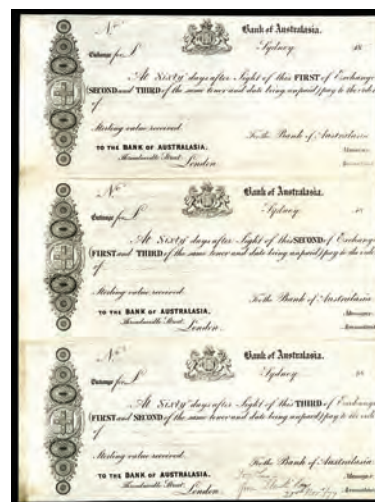 No.
Bank of Australasia.
Exchange for £
Sydney, 18
At Sixty days after Sight of this FIRST of Exchange
(SECOND and THIRD of the same tenor and date being unpaid) pay to the order
of
Sterling value received.
For the Bank of Australasia
TO THE BANK OF AUSTRALASIA.
Manager.
Threadneedle Street,
London
Accountant
No.
Bank of Australasia.
Exchange for £
Sydney, 18
At Sixty days after Sight of this SECOND of Exchange
(FIRST and THIRD of the same tenor and date being unpaid) pay to the order
of
Sterling value received.
For the Bank of Australasia
TO THE BANK OF AUSTRALASIA.
Manager.
Threadneedle Street,
London.
Accountant
No.
Bank of Australasia.
Exchange for £
Sydney, 18
At Sixty days after Sight of this THIRD of Exchange
(FIRST and SECOND of the same tenor and date being unpaid) pay to the order
of
Sterling value received.
For the Bank of Australasia
TO THE BANK OF AUSTRALASIA.
Manager.
Threadneedle Street,
London
Accountant